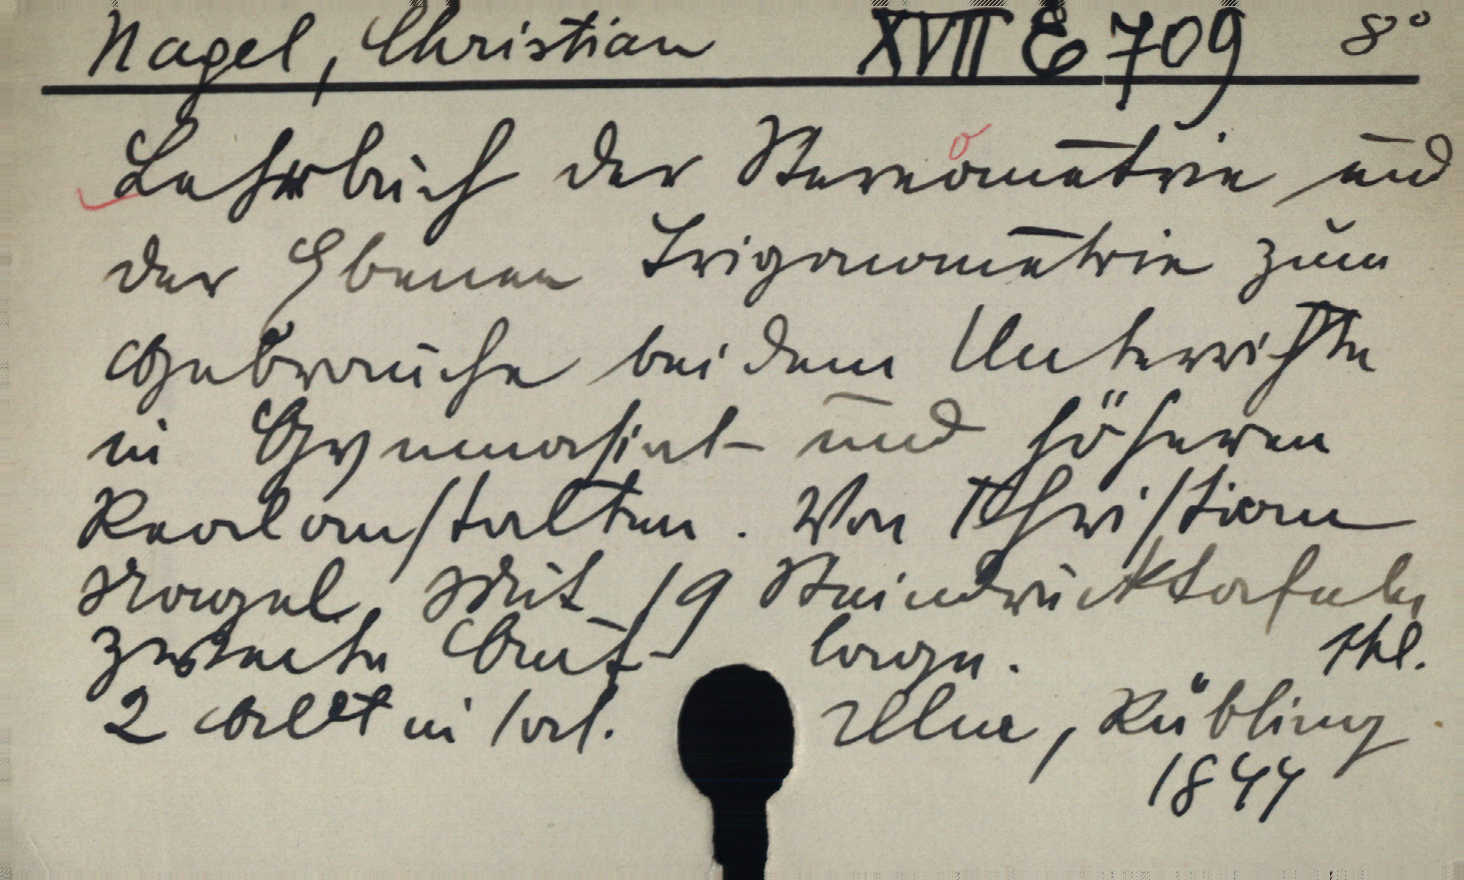 Nagel, Christian XVII E 709 8°
Lehrbuch der Stereometrie und
der Ebenen Trigonometrie zum
Gebrauche bei dem Unterrichte
in Gymnasial- und höheren
Realanstalten. Von Christian
Nagel. Mit 19 Steindrucktafeln
zweite Auf- lage.
2 in Ulm, Nübling
1844